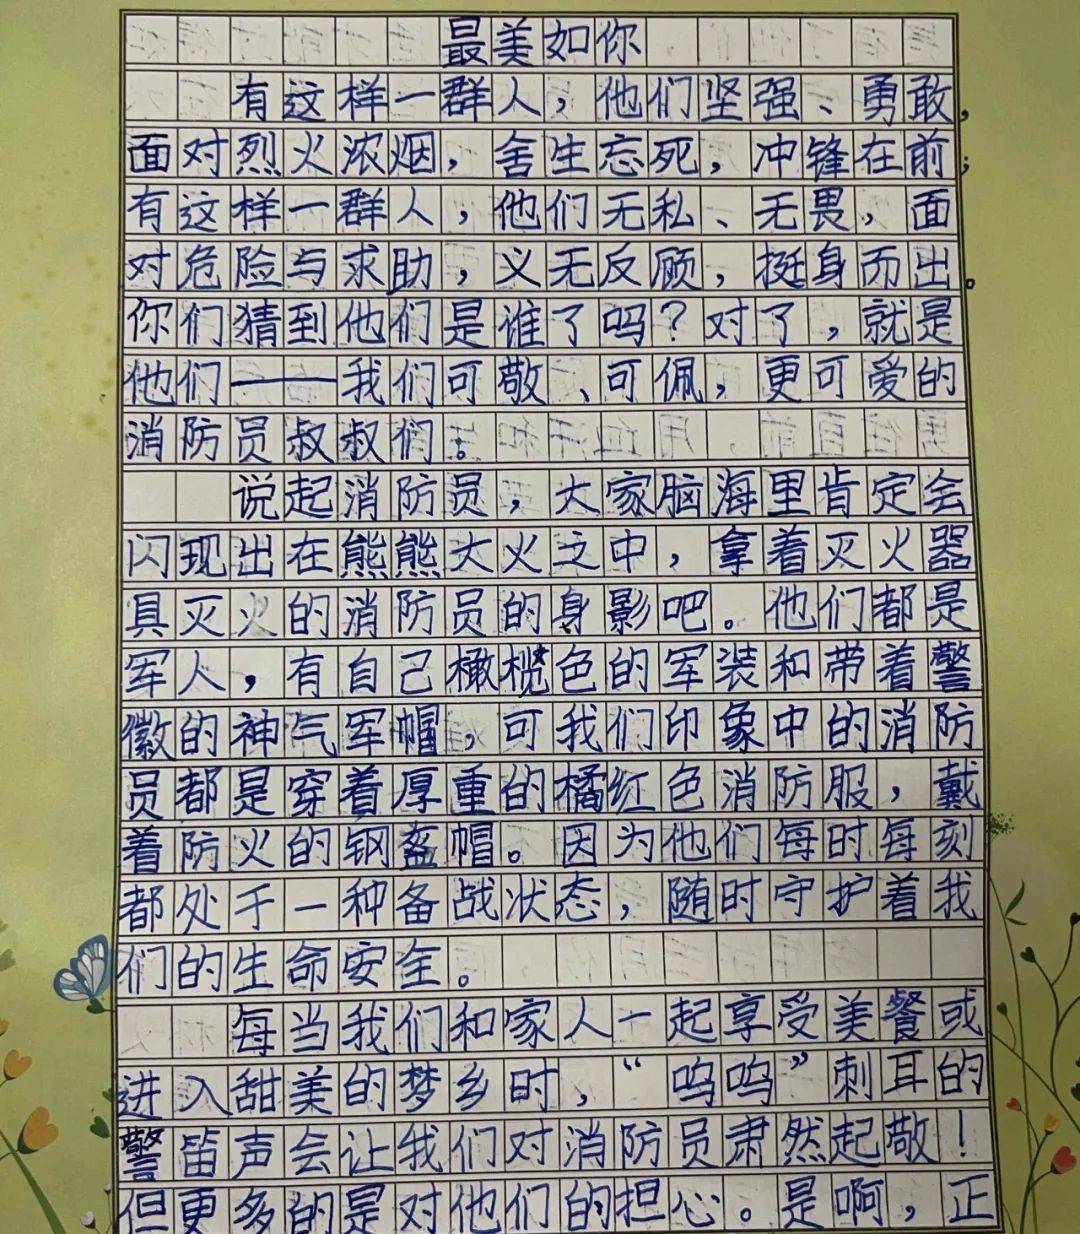 最美如你
有这样一群人，他们坚强、勇敢，
面对烈火浓烟，舍生忘死，冲锋在前；
有这样一群人，他们无私、无畏，面
对危险与求助，义无反顾，挺身而出。
你们猜到他们是谁了吗？对了，就是
他们——我们可敬、可佩，更可爱的
消防员叔叔们。
说起消防员，大家脑海里肯定会
闪现出在熊熊大火之中，拿着灭火器
具灭火的消防员的身影吧。他们都是
军人，有自己橄榄色的军装和带着警
徽的神气军帽，可我们印象中的消防
员都是穿着厚重的橘红色消防服，戴
着防火的钢盔帽。因为他们每时每刻
都处于一种备战状态，随时守护着我
们的生命安全。
每当我们和家人一起享受美餐或
进入甜美的梦乡时，“呜呜”刺耳的
警笛声会让我们对消防员肃然起敬！
但更多的是对他们的担心。是啊，正